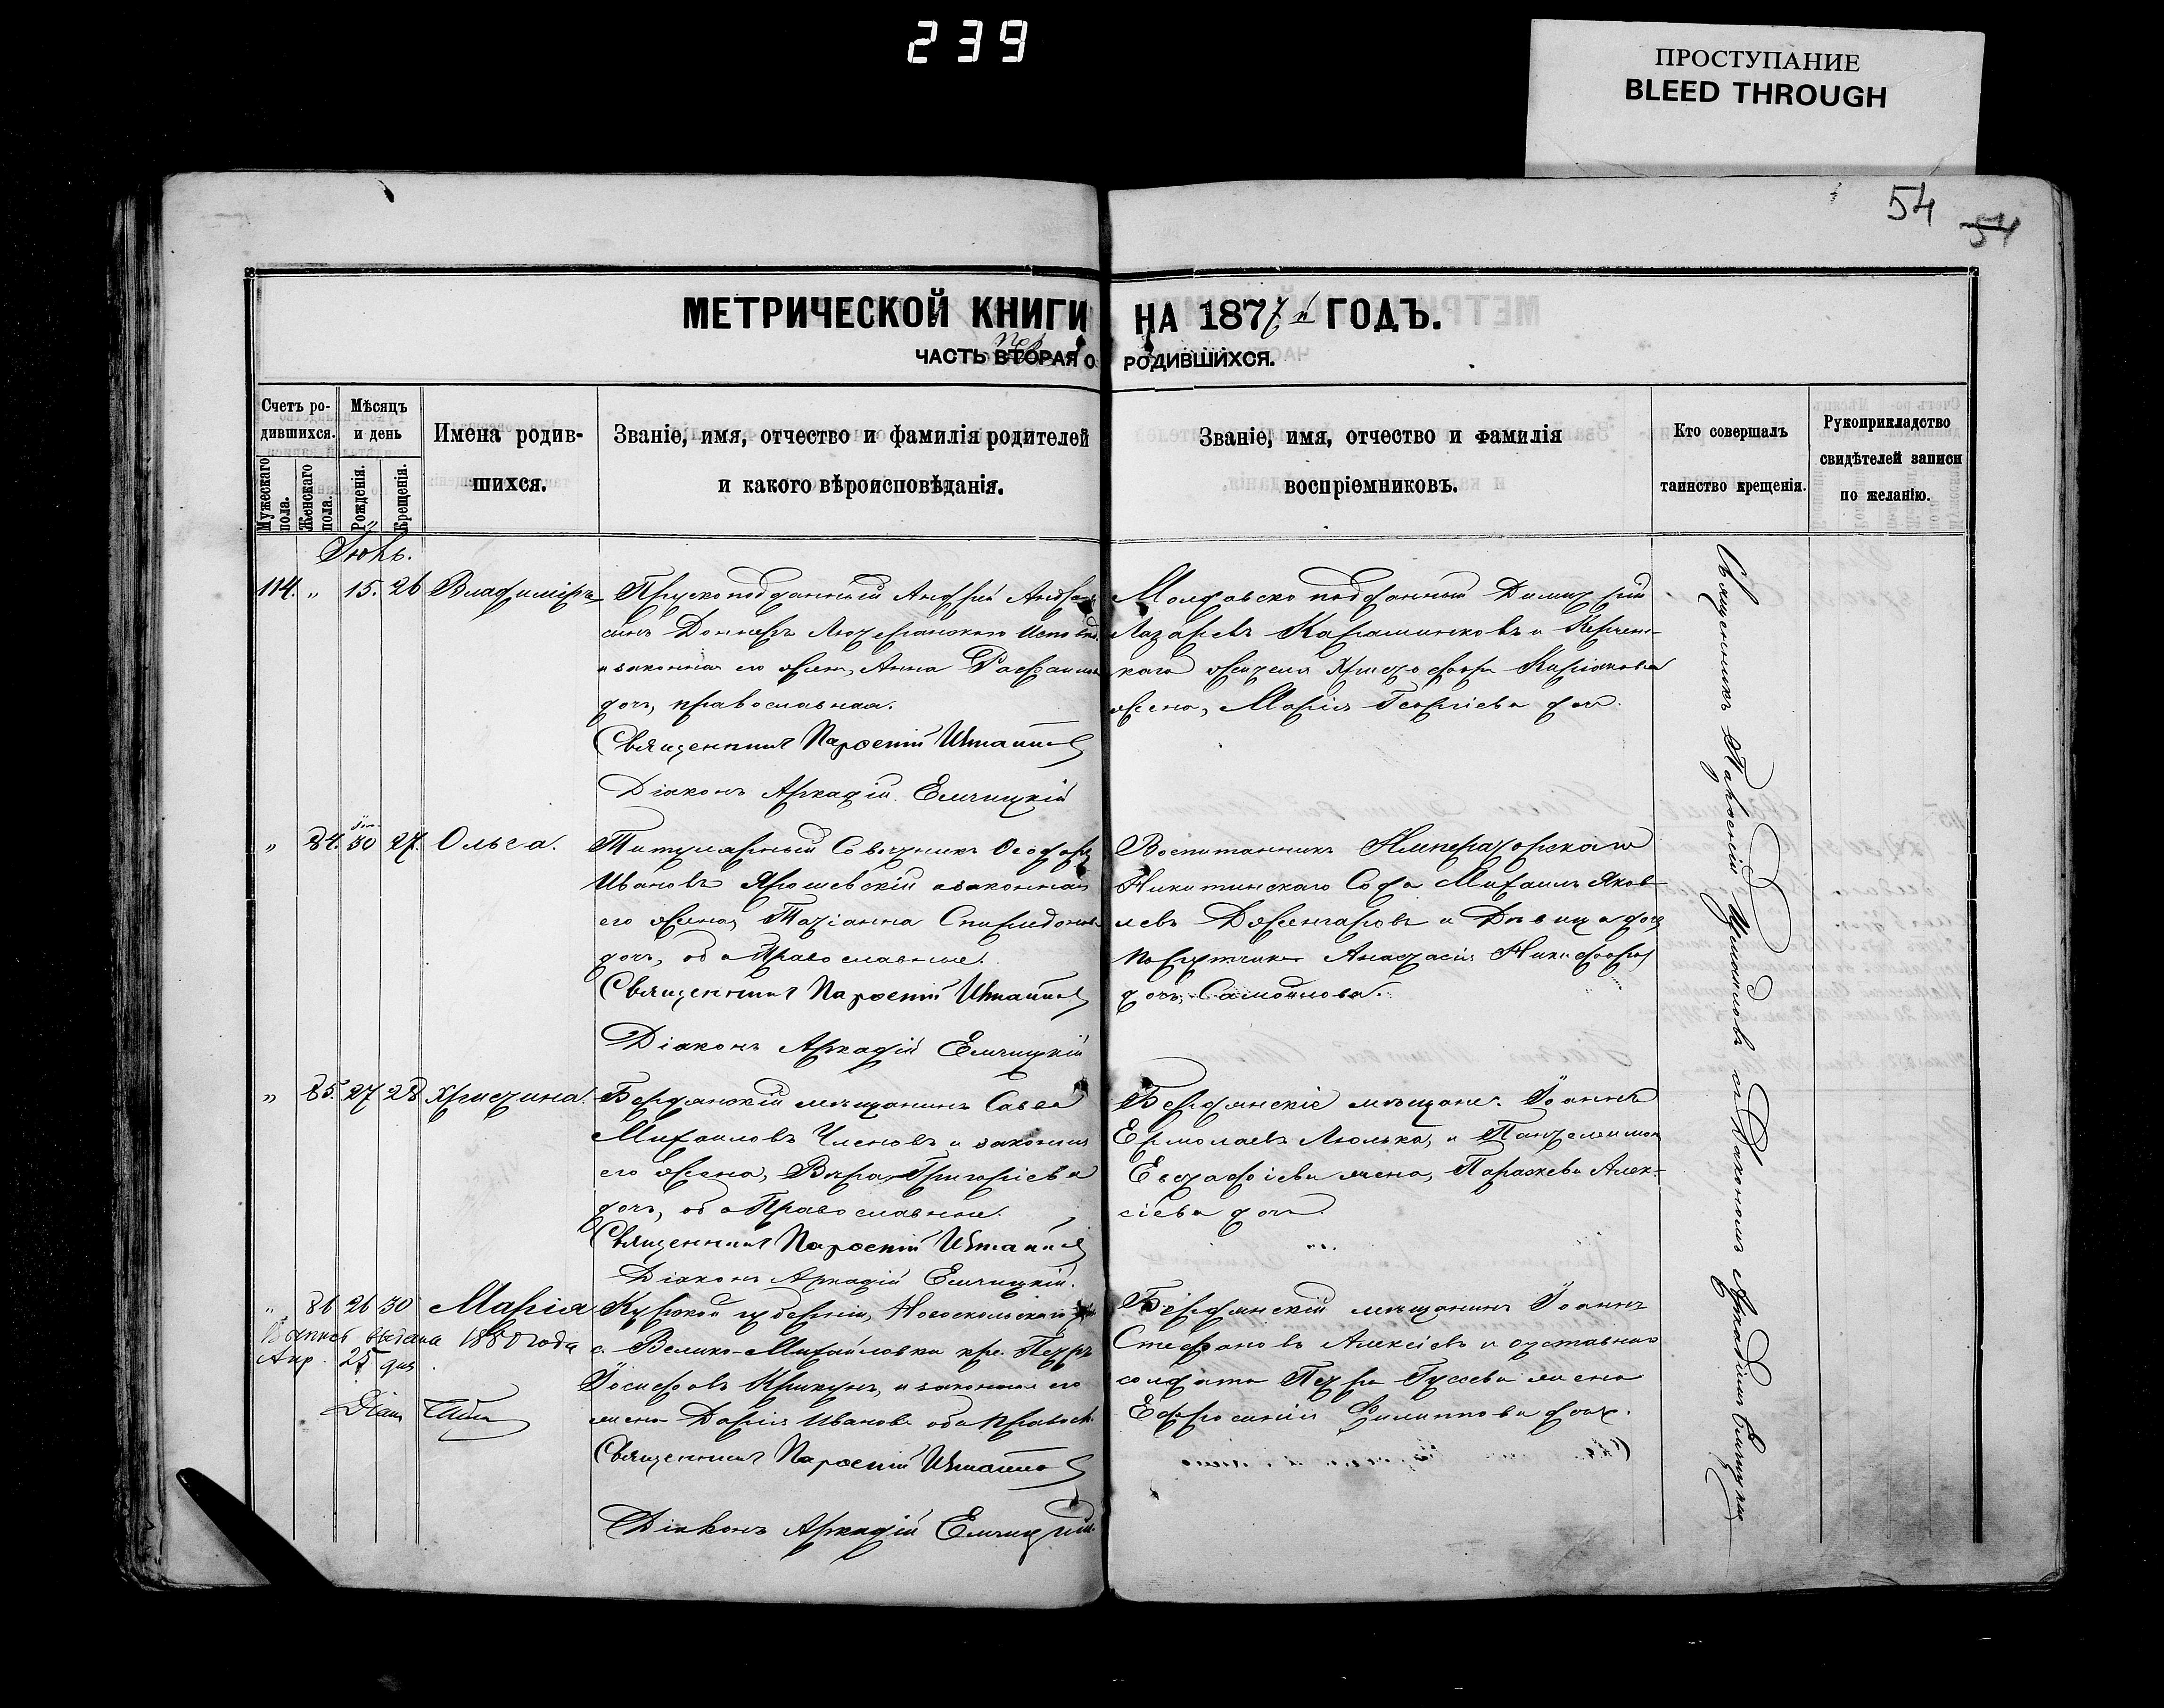 239
ПРОСТУПАНИЕ
BLEED THROUGH
54
54
МЕТРИЧЕСКОЙ КНИГИ НА 1877й ГОДЪ.
ЧАСТЬ ВТОРАЯ О РОДИВШИХСЯ.
пер
Счетъ родившихся.
Мужескаго пола.
Женскаго пола.
Мѣсяцъ и день
Рожденія.
Крещенія.
Имена родив-
шихся.
Званіе, имя, отчество и фамилія родителей
и какого вѣроисповѣданія.
Званіе, имя, отчество и фамилія
воспріемниковъ.
Кто совершалъ
таинство крещенія.
Рукоприкладство
свидѣтелей записи
по желанію.
114. " 15. 26 Владиміръ
Прусскоподданный Андрей
сынъ Лютеранскаго
и законная его жена, Анна
дочь, православная.
Священникъ Парѳеній
Діаконъ Аркадій Емчицкій
Молдавско подданный Димитрій
Лазаревъ и Керчен-
каго жителя Христофора
жена, Марія Георгіева доч.
" 84. 30 27. Ольга.
Титулярный Совѣтникъ Ѳеодоръ
Ивановъ Ярошевскій и законная
его жена, Татіанна Спиридонова
дочь, оба Православные.
Священникъ Парѳеній
Діаконъ Аркадій Емчицкій
Воспитанникъ Императорскаго
Никитинскаго Сада Михаилъ Яков-
левъ и Дѣвица дочь
Анастасія Никифорова
дочь Самойлова.
" 85. 27 28 Христина.
Бердянскій мѣщанинъ Савва
Михаиловъ Членовъ и законная
его жена, Вѣра Григоріева
дочь, оба Православные.
Священникъ Парѳеній
Діаконъ Аркадій Емчицкій.
Бердянскіе мѣщане: Іоаннъ
Ермолаевъ Люлька, и Пантелеимона
Евстафіева жена, Параскева Алек-
сіева доч.
" 86 26 30 Марія
выдана 1880 года
Апр. 25 дня
Курской губерніи, Новооскольскаго
с. Велико-Михайловки кре. Петръ
Іосифовъ Крикунъ, и законная его
жена Дарія Иванова оба правосл.
Священникъ Парѳеній
Діаконъ Аркадій Емчицкій.
Бердянскій мѣщанинъ Іоаннъ
Стефановъ Алексіевъ и отставнаго
солдата Петра Гусева жена
Евфросинія Филиппова доч.
Священникъ Парѳеній съ Діакономъ Аркадіемъ Емчицкимъ